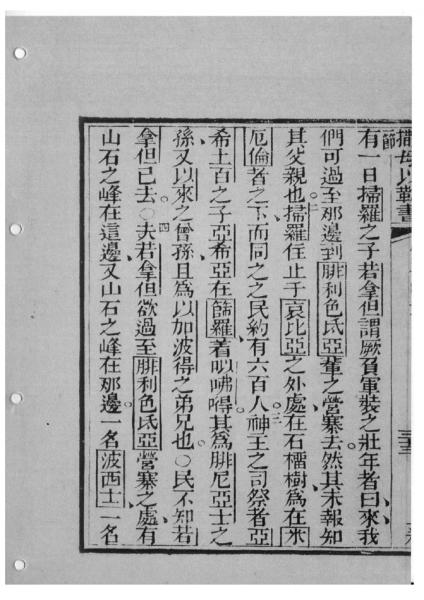 撒母以勒書
節
有一日掃羅之子若拿但謂厥負軍裝之壯年者曰、來我
們可過至那邊到腓利色氐亞輩之營寨去。然其未報知
其父親也。二掃羅住止于哀比亞之外處、在石橊樹為在米
厄倫者之下、而同之之民約有六百人。三神王之司祭者亞
希土百之子亞希亞在篩羅、着叺咈嘚、其為腓尼亞士之
孫、又以來之曾孫、且為以加波得之弟兄也。○民不知若
拿但已去。○四夫若拿但欲過至腓利色氐亞營寨之處、有
山石之峰在這邊、又山石之峰在那邊。一名波西士、一名